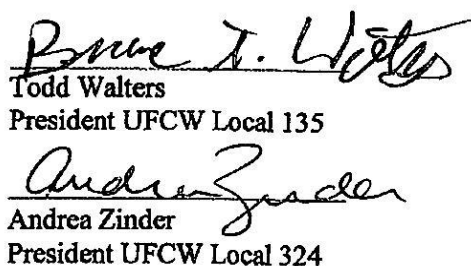 Bruce T. Walters
Todd Walters
President UFCW Local 135
Andrea Zinder
Andrea Zinder
President UFCW Local 324